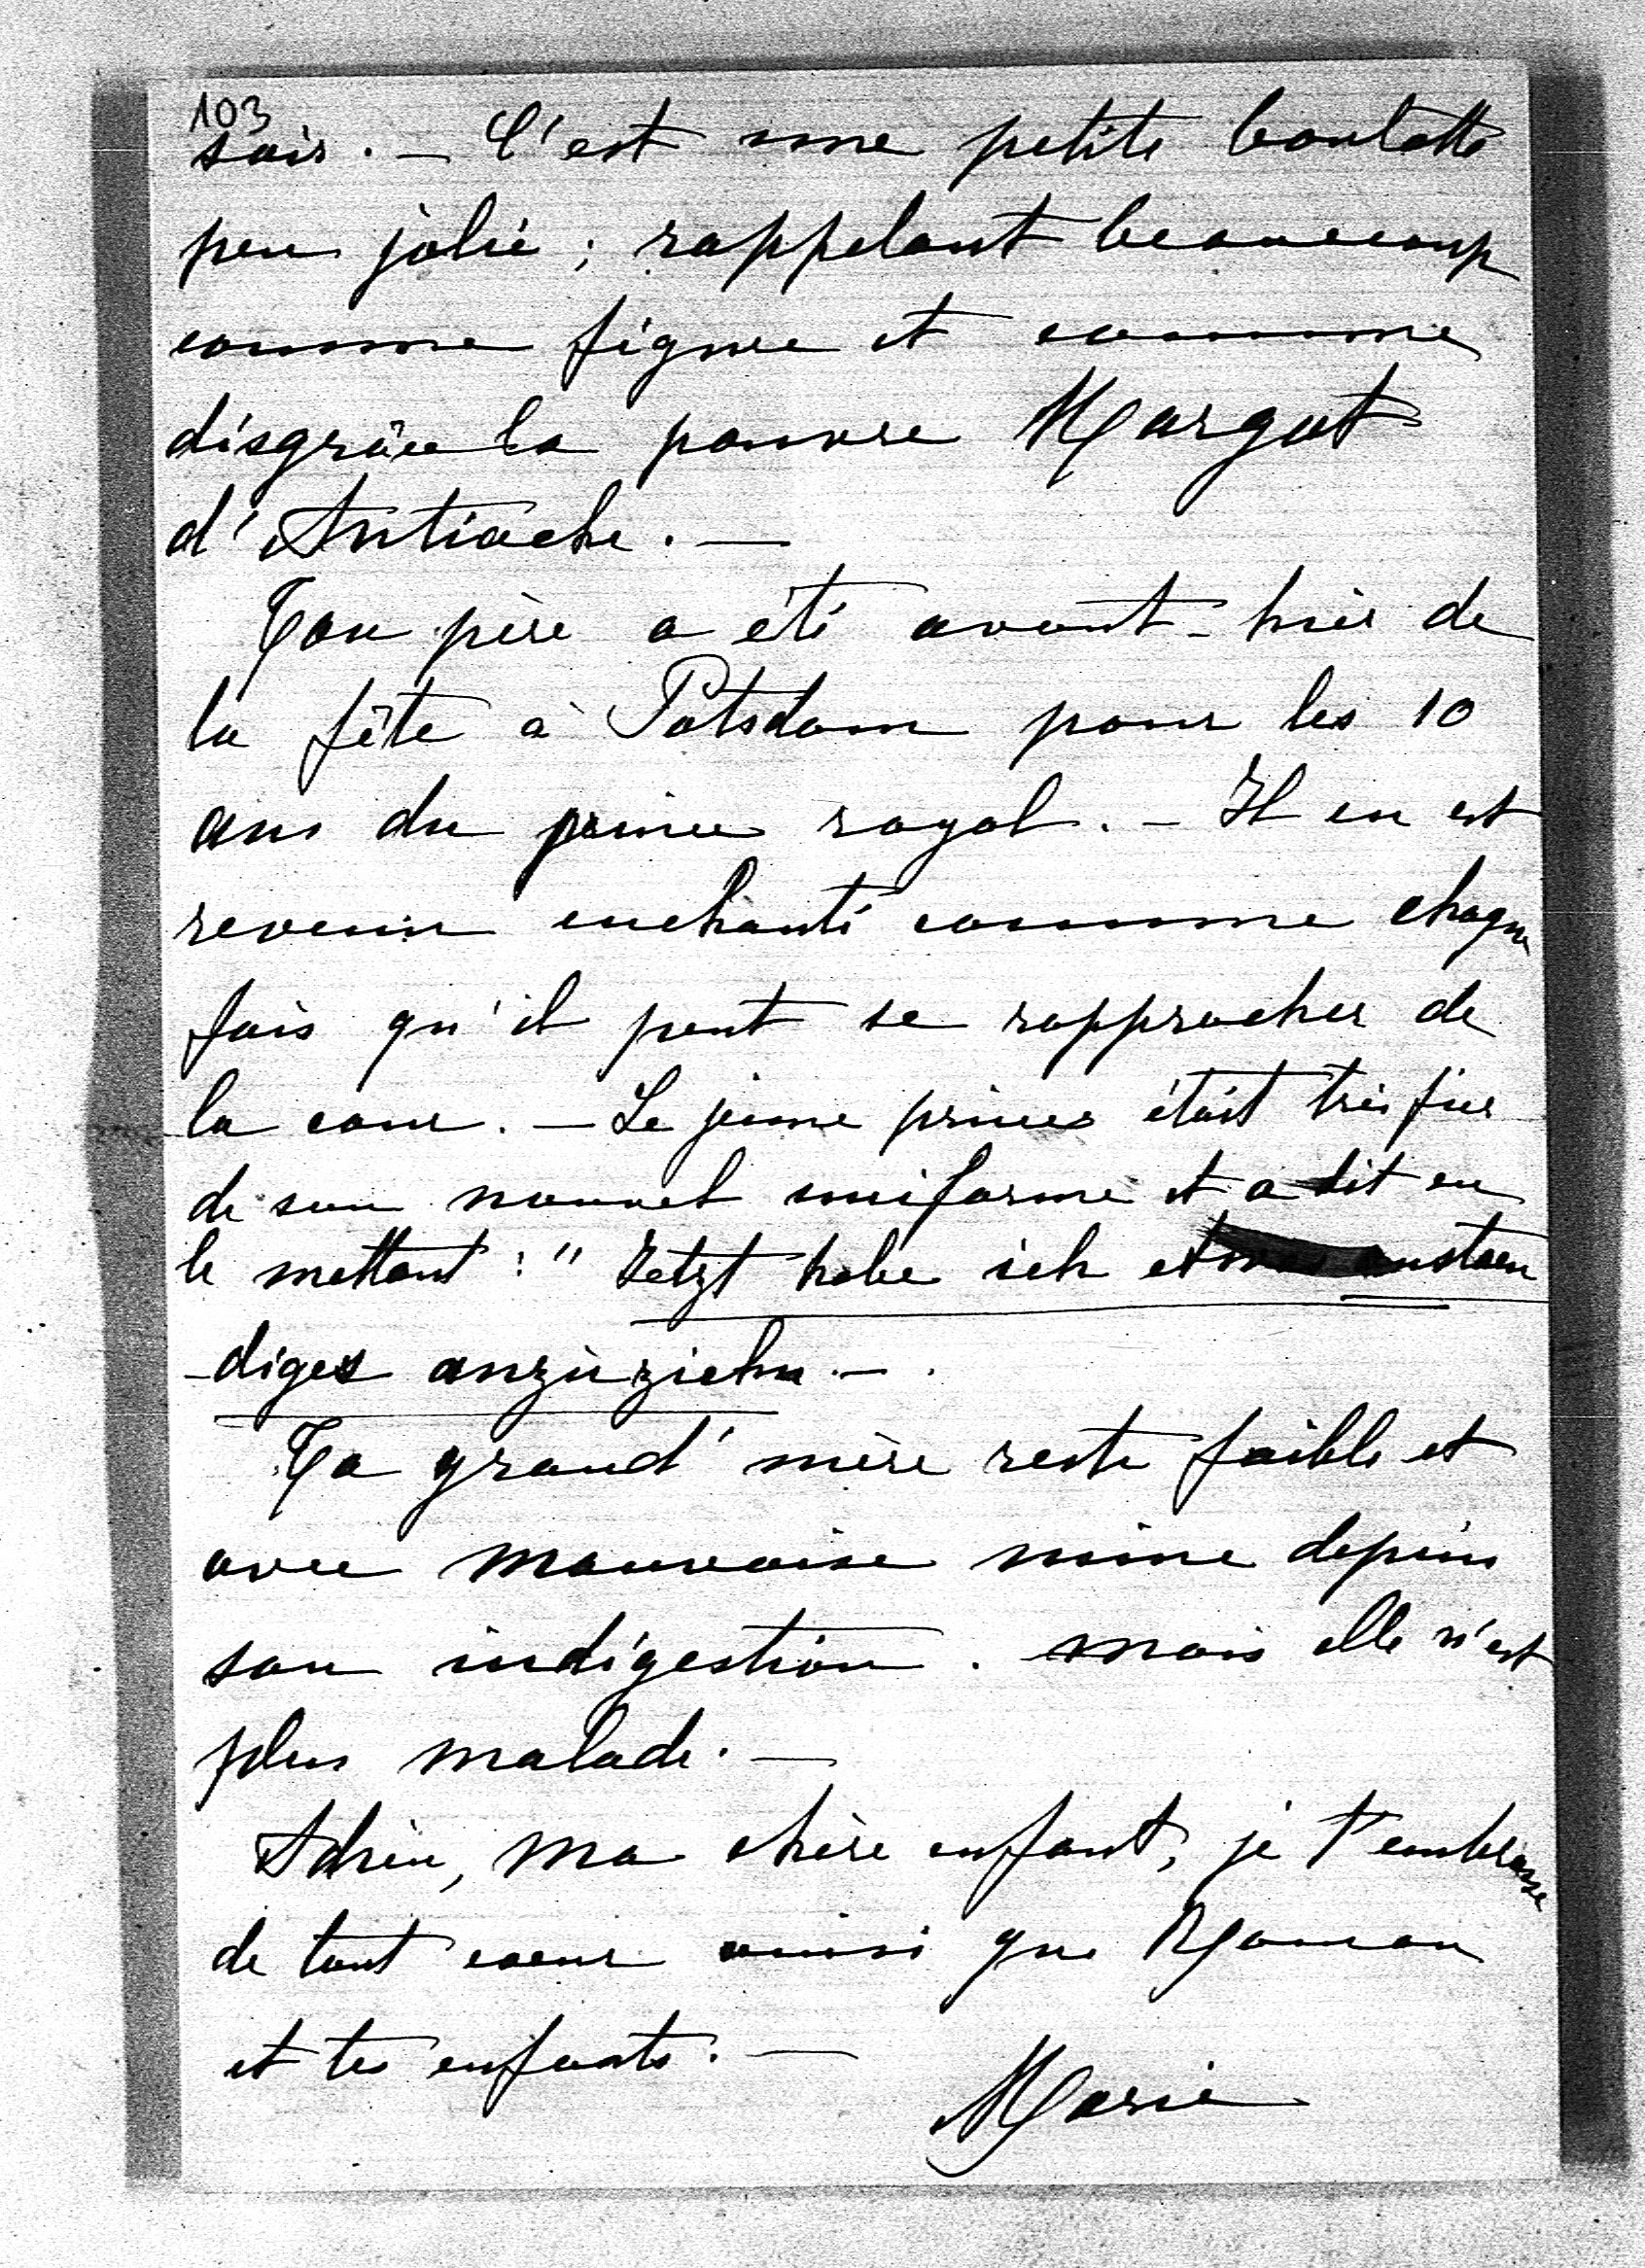 103
soir. — C'est une petite boulotte
peu jolie ; rappelant beaucoup
comme figure et comme
disgrâce la pauvre Margot
d'Antioche. —
Ton père a été avant-hier de
la fête à Potsdam pour les 10
ans du prince royal. — Il en est
revenu enchanté comme chaque
fois qu'il peut se rapprocher de
la cour. — Le jeune prince était très fier
de son nouvel uniforme et a dit en
le mettant : " Jetzt habe ich etwas anstaen
-diges anzùziehn. —
Ta grand'mère reste faible et
avec mauvaise mine depuis
son indigestion. mais elle n'est
plus malade. —
Adieu, ma chère enfant, je t'embrasse
de tout coeur ainsi que Roman
et tes enfants. —
Marie